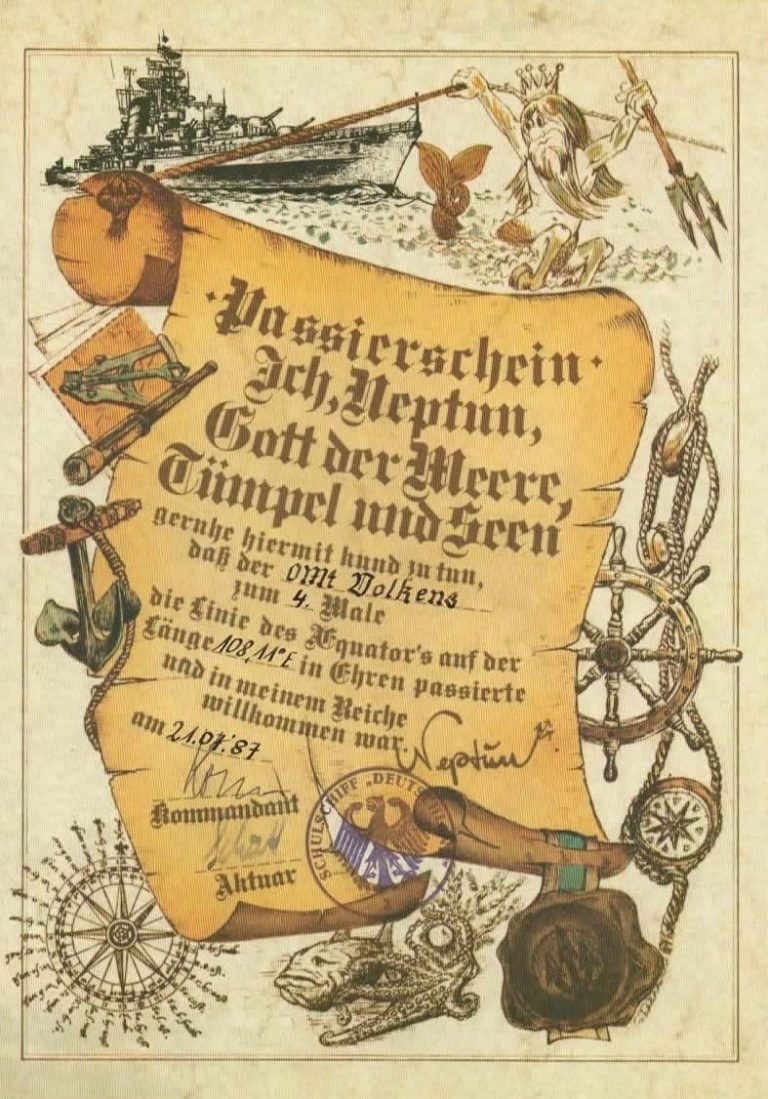 ·Passierschein·
Ich, Neptun,
Gott der Meere,
Tümpel und Seen
geruhe hiermit kund zu tun,
daß der OMt Volkens
zum 4. Male
die Linie des Æquator's auf der
Länge 108,11°E in Ehren passierte
und in meinem Reiche
willkommen war.
am 21.07.87
Neptun
Kommandant
Aktuar
SCHULSCHIFF „DEUTSCH